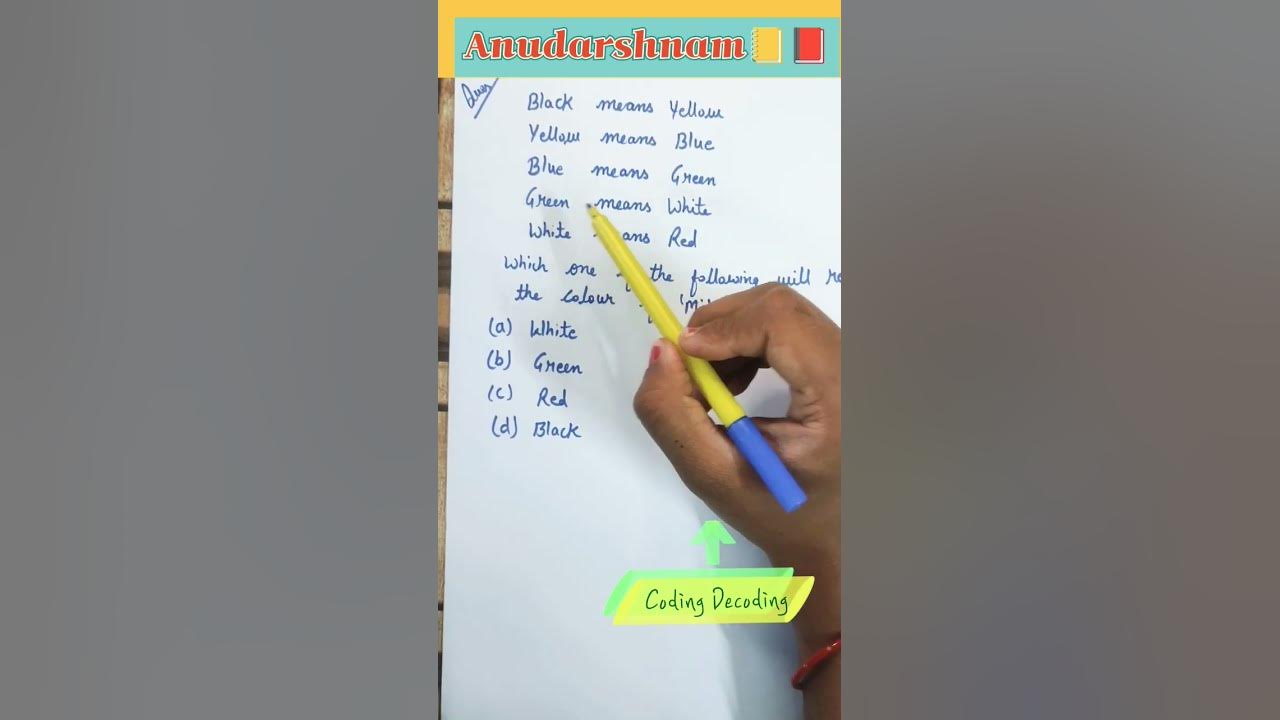 Anudarshnam
Ques
Black means Yellow
Yellow means Blue
Blue means Green
Green means White
White Red
Which one the following will
the colour
(a) White
(b) Green
(c) Red
(d) Black
Coding Decoding